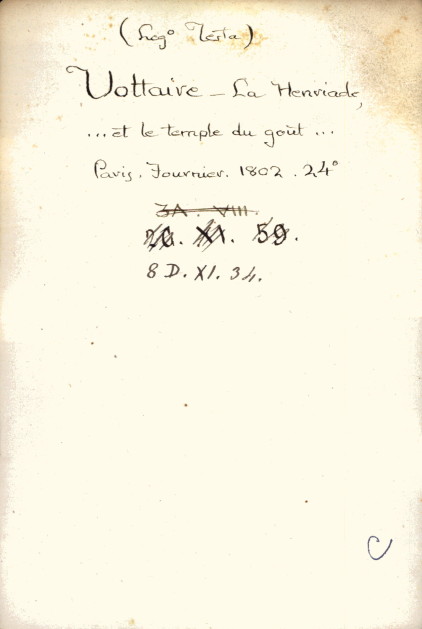 (Leg° Testa)
Voltaire - La Henriade,
...et le temple du goût...
Paris. Fournier. 1802. 24°
3A. VIII.
20. XI. 59.
8 D. XI. 34.
C